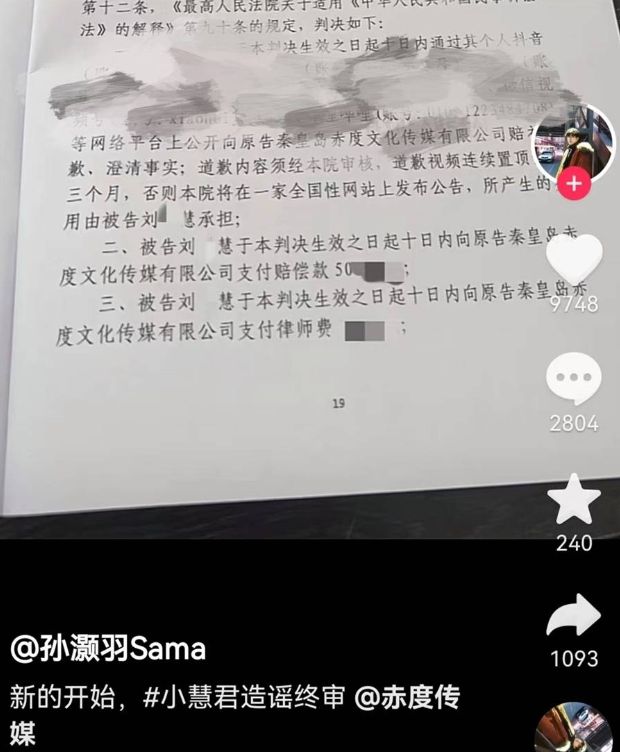 第十二条，《最高人民法院关于适用《中华人民共和国民事诉讼
法》的解释》第九十条的规定，判决如下：
本判决生效之日起十日内通过其个人抖音
等网络平台上公开向原告秦皇岛赤度文化传媒有限公司赔
歉、澄清事实；道歉内容须经本院审核，道歉视频连续置顶
三个月，否则本院将在一家全国性网站上发布公告，所产生的
用由被告刘 慧承担；
二、被告刘 慧于本判决生效之日起十日内向原告秦皇岛赤
度文化传媒有限公司支付赔偿款 50 ；
三、被告刘 慧于本判决生效之日起十日内向原告秦皇岛赤
度文化传媒有限公司支付律师费 ；
19
9748
2804
240
1093
@孙灏羽Sama
新的开始，#小慧君造谣终审 @赤度传
媒